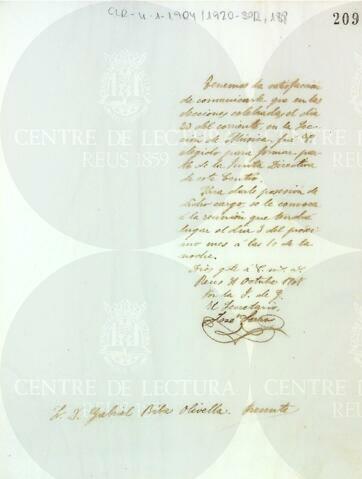 CLR-U-1-1904/1920-SPR, 188
209
Tenemos la satisfacción
de comunicarle que en las
elecciones celebradas el día
29 del corriente, en la Sec-
ción de Música, fué V.
elegido para formar par-
te de la Junta Directiva
de este Centro.
Para darle posesión de
dicho cargo, se le convoca
á la reunión que tendrá
lugar el día 3 del próxi-
mo mes á las 10 de la
noche.
Dios gde á V. m. a.
Reus 31 Octubre
Por la J. de G.
El Secretario,
José
Sr. D. Gabriel Biba Olivella. Presente
CENTRE DE LECTURA
REUS 1859
CENTRE DE LECTURA
REUS 1859
CENTRE DE LECTURA
CENTRE DE LECTURA